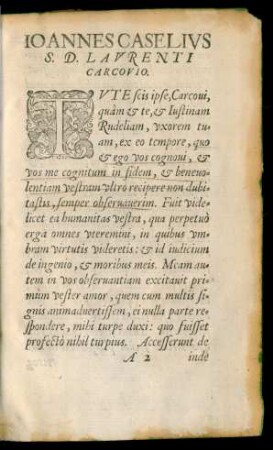 IOANNES CASELIVS
S. D. LAVRENTI
CARCOVIO.
TVTE scis ipse, Carcoui,
quàm & te, & Iustinam
Rudeliam, vxorem tu-
am, ex eo tempore, quo
& ego vos cognoui, &
vos me cognitum in fidem, & beneuo-
lentiam vestram vltro recipere non dubi-
tastis, semper obseruauerim. Fuit vide-
licet ea humanitas vestra, qua perpetuò
erga omnes vteremini, in quibus vm-
bram virtutis videretis: & id iudicium
de ingenio, & moribus meis. Meam au-
tem in vos obseruantiam excitauit pri-
mùm vester amor, quem cum multis si-
gnis animaduertissem, ei nulla parte re-
spondere, mihi turpe duxi: quo fuisset
profectò nihil turpius. Accesserunt de
A 2 inde